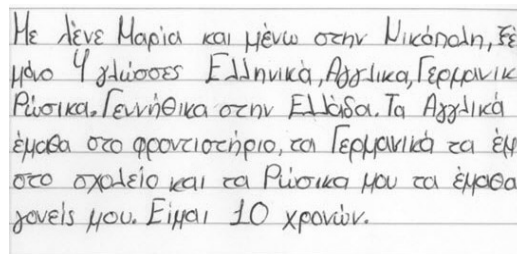 Με λένε Μαρία και μένω στην Νικόπολη, ξέ
μόνο 4 γλώσσες Ελληνικά, Αγγλικα, Γερμανικ
Ρώσικα. Γεννήθικα στην Ελλάδα. Τα Αγγλικά
έμαθα στο φροντιστήριο, τα Γερμανικά τα έμ
στο σχολείο και τα Ρώσικα μου τα έμαθα
γονείς μου. Είμαι 10 χρονών.